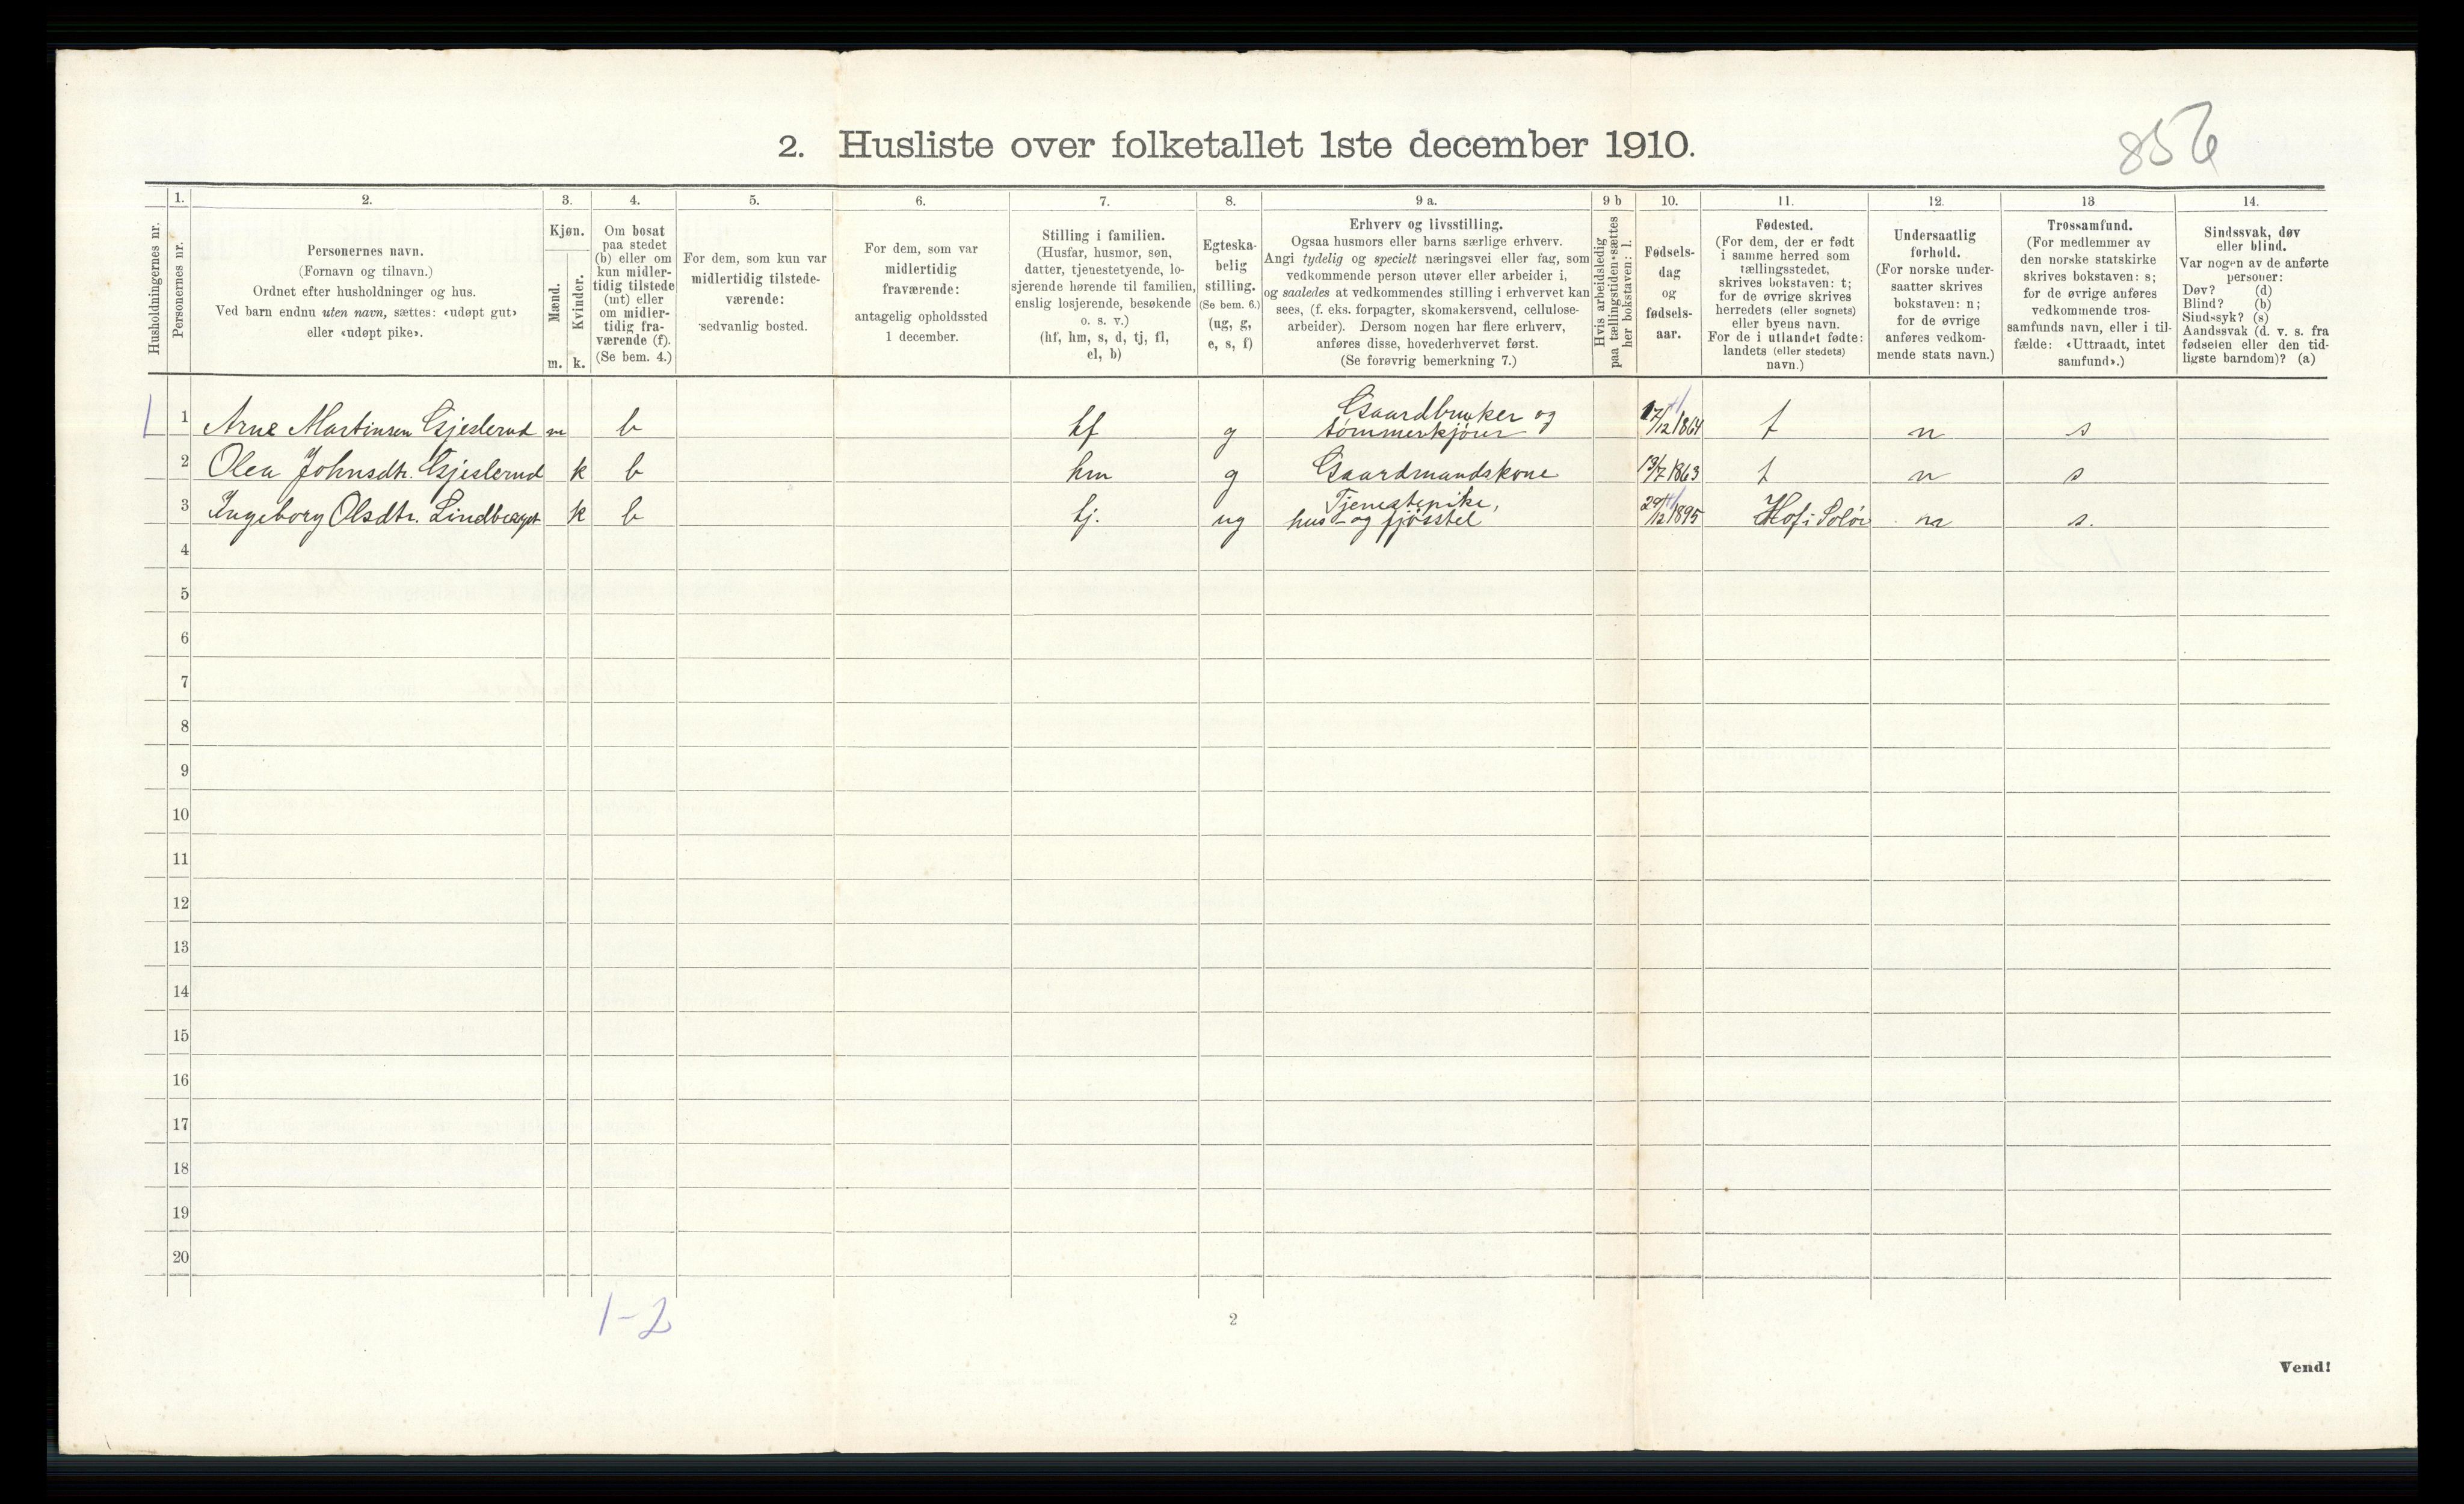 856
2. Husliste over folketallet 1ste december 1910.
1. 2. 3. 4. 5. 6. 7. 8. 9 a. 9 b 10. 11. 12. 13 14.
Husholdningernes nr.
Personernes nr.
Personernes navn.
(Fornavn og tilnavn.)
Ordnet efter husholdninger og hus.
Ved barn endnu uten navn, sættes: «udøpt gut»
eller «udøpt pike».
Kjøn.
Mænd.
Kvinder.
m. k.
Om bosat
paa stedet
(b) eller om
kun midler-
tidig tilstede
(mt) eller
om midler-
tidig fra-
værende (f).
(Se bem. 4.)
For dem, som kun var
midlertidig tilstede-
værende:
sedvanlig bosted.
For dem, som var
midlertidig
fraværende:
antagelig opholdssted
1 december.
Stilling i familien.
(Husfar, husmor, søn,
datter, tjenestetyende, lo-
sjerende hørende til familien,
enslig losjerende, besøkende
o. s. v.)
(hf, hm, s, d, tj, fl,
el, b)
Egteska-
belig
stilling.
(Se bem. 6.)
(ug, g,
e, s, f)
Erhverv og livsstilling.
Ogsaa husmors eller barns særlige erhverv.
Angi tydelig og specielt næringsvei eller fag, som
vedkommende person utøver eller arbeider i,
og saaledes at vedkommendes stilling i erhvervet kan
sees, (f. eks. forpagter, skomakersvend, cellulose-
arbeider). Dersom nogen har flere erhverv,
anføres disse, hovederhvervet først.
(Se forøvrig bemerkning 7.)
Hvis arbeidsledig
paa tællingstiden sættes
her bokstaven: l.
Fødsels-
dag
og
fødsels-
aar.
Fødested.
(For dem, der er født
i samme herred som
tællingsstedet,
skrives bokstaven: t;
for de øvrige skrives
herredets (eller sognets)
eller byens navn.
For de i utlandet fødte:
landets (eller stedets)
navn.)
Undersaatlig
forhold.
(For norske under-
saatter skrives
bokstaven: n;
for de øvrige
anføres vedkom-
mende stats navn.)
Trossamfund.
(For medlemmer av
den norske statskirke
skrives bokstaven: s;
for de øvrige anføres
vedkommende tros-
samfunds navn, eller i til-
fælde: «Uttraadt, intet
samfund».)
Sindssvak, døv
eller blind.
Var nogen av de anførte
personer:
Døv? (d)
Blind? (b)
Sindssyk? (s)
Aandssvak (d. v. s. fra
fødselen eller den tid-
ligste barndom)? (a)
1 1 Arne Martinsen Gjeslerud m b hf g Gaardbruker og
tømmerkjører 17/12 1864 t n s
2 Olea Johnsdtr. Gjeslerud k b hm g Gaardmandskone 19/7 1863 t n s
3 Ingeborg Olsdtr. k b tj. ug Tjenestepike,
hus- og fjøsstel 29/12 1895 Hof i Solør n s.
4
5
6
7
8
9
10
11
12
13
14
15
16
17
18
19
20
1-2
2
Vend!